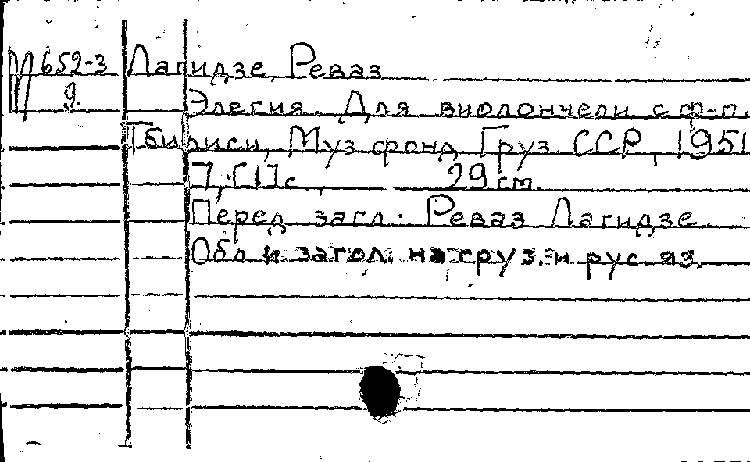 М 652-3 Лагидзе, Реваз
9. Элегия. Для виолончели с ф-п.
Тбилиси, Муз фонд Груз ССР, 1951
7, [1] с, 29 см.
Перед загл.: Реваз Лагидзе.
Обл и загол. на груз. и рус яз.